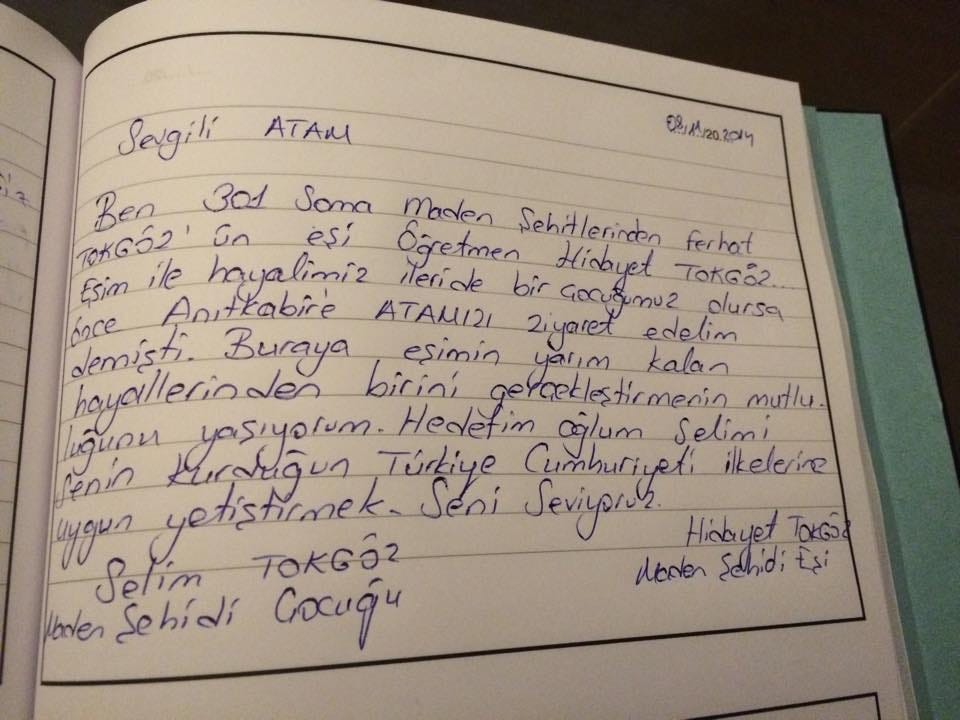 Sevgili ATAM
08.11.20.2014
Ben 301 Soma Maden Şehitlerinden Ferhat
TOKGÖZ'ün eşi Öğretmen Hidayet TOKGÖZ...
Eşim ile hayalimiz ileride bir çocuğumuz olursa
önce Anıtkabir'e ATAMIZI ziyaret edelim
demişti. Buraya eşimin yarım kalan
hayallerinden birini gerçekleştirmenin mutlu-
luğunu yaşıyorum. Hedefim oğlum Selimi
Senin Kurduğun Türkiye Cumhuriyeti ilkelerine
uygun yetiştirmek. Seni Seviyoruz.
Hidayet TOKGÖZ
Maden Şehidi Eşi
Selim TOKGÖZ
Maden Şehidi Çocuğu